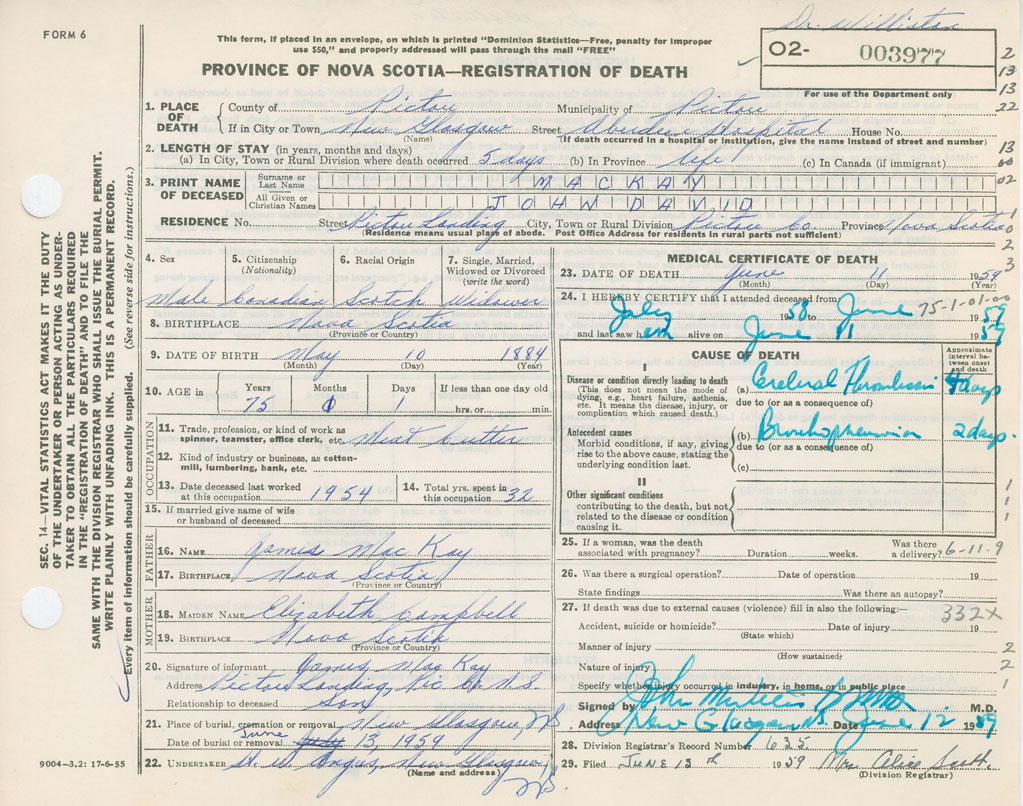 FORM 6
This form, if placed in an envelope, on which is printed "Dominion Statistics—Free, penalty for improper
use $50," and properly addressed will pass through the mail "FREE"
PROVINCE OF NOVA SCOTIA—REGISTRATION OF DEATH
Dr. Williston
O2- 003977
For use of the Department only
2
13
13
22
13
00
02
1
0
2
3
SEC. 14—VITAL STATISTICS ACT MAKES IT THE DUTY
OF THE UNDERTAKER OR PERSON ACTING AS UNDER-
TAKER TO OBTAIN ALL THE PARTICULARS REQUIRED
IN THE "REGISTRATION OF DEATH" AND TO FILE THE
SAME WITH THE DIVISION REGISTRAR WHO SHALL ISSUE THE BURIAL PERMIT.
WRITE PLAINLY WITH UNFADING INK. THIS IS A PERMANENT RECORD.
Every item of information should be carefully supplied. (See reverse side for instructions.)
1. PLACE OF DEATH
County of Pictou Municipality of Pictou
If in City or Town New Glasgow Street Aberdeen Hospital House No.
(Name) (If death occurred in a hospital or institution, give the name instead of street and number)
2. LENGTH OF STAY (in years, months and days)
(a) In City, Town or Rural Division where death occurred 5 days (b) In Province life (c) In Canada (if immigrant)
3. PRINT NAME OF DECEASED
Surname or Last Name MACKAY
All Given or Christian Names JOHN DAVID
RESIDENCE No. Street Pictou Landing City, Town or Rural Division Pictou Co Province Nova Scotia
(Residence means usual place of abode. Post Office Address for residents in rural parts not sufficient)
4. Sex 5. Citizenship (Nationality) 6. Racial Origin 7. Single, Married, Widowed or Divorced (write the word)
Male Canadian Scotch Widower
8. BIRTHPLACE Nova Scotia
(Province or Country)
9. DATE OF BIRTH May 10 1884
(Month) (Day) (Year)
10. AGE in Years Months Days If less than one day old
75 1 hrs. or min.
OCCUPATION
11. Trade, profession, or kind of work as
spinner, teamster, office clerk, etc. Meat cutter
12. Kind of industry or business, as cotton-
mill, lumbering, bank, etc.
13. Date deceased last worked
at this occupation 1954
14. Total yrs. spent in
this occupation 32
15. If married give name of wife
or husband of deceased
FATHER
16. NAME James Mac Kay
17. BIRTHPLACE Nova Scotia
(Province or Country)
MOTHER
18. MAIDEN NAME Elizabeth Campbell
19. BIRTHPLACE Nova Scotia
(Province or Country)
20. Signature of informant James Mac Kay
Address Pictou Landing, Pic Co N.S.
Relationship to deceased Son
21. Place of burial, cremation or removal New Glasgow NS
June
Date of burial or removal July 13, 1959
22. UNDERTAKER H. W. Angus, New Glasgow, NS.
(Name and address)
9004-3.2: 17-6-55
MEDICAL CERTIFICATE OF DEATH
23. DATE OF DEATH June 11 1959
(Month) (Day) (Year)
24. I HEREBY CERTIFY that I attended deceased from
75-1-01-00
July 1958 to June 1959
and last saw him alive on June 11 1959
CAUSE OF DEATH
Approximate interval between onset and death
I
Disease or condition directly leading to death
(This does not mean the mode of
dying, e.g., heart failure, asthenia,
etc. It means the disease, injury, or
complication which caused death.)
(a) Cerebral Thrombosis 4 days
due to (or as a consequence of)
Antecedent causes
Morbid conditions, if any, giving
rise to the above cause, stating the
underlying condition last.
(b) Bronchopneumonia 2 days.
due to (or as a consequence of)
(c)
II
Other significant conditions
contributing to the death, but not
related to the disease or condition
causing it.
1
1
1
25. If a woman, was the death
associated with pregnancy? Duration weeks. Was there
a delivery?
6-11-9
26. Was there a surgical operation? Date of operation 19
State findings Was there an autopsy?
27. If death was due to external causes (violence) fill in also the following:—
332X
Accident, suicide or homicide? Date of injury 19
(State which)
Manner of injury 2
(How sustained)
Nature of injury 2
Specify whether injury occurred in industry, in home, or in public place 1
Signed by John M.D.
Address New Glasgow NS Date June 12 1959
28. Division Registrar's Record Number 635
29. Filed JUNE 13th 1959 Mrs Alice Scott.
(Division Registrar)